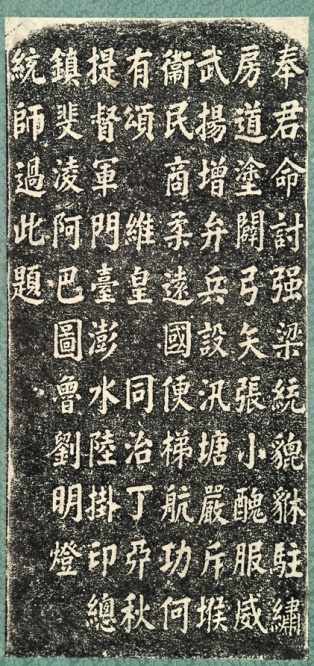 奉君命討强梁統貔貅駐繡
房道塗闢弓矢張小醜服威
武揚增弁兵設汛塘嚴斥堠
衞民商柔遠國便梯航功何
有頌 維皇 同治丁卯秋
提督軍門臺澎水陸掛印總
鎮斐凌阿巴圖魯劉明燈
統師過此題